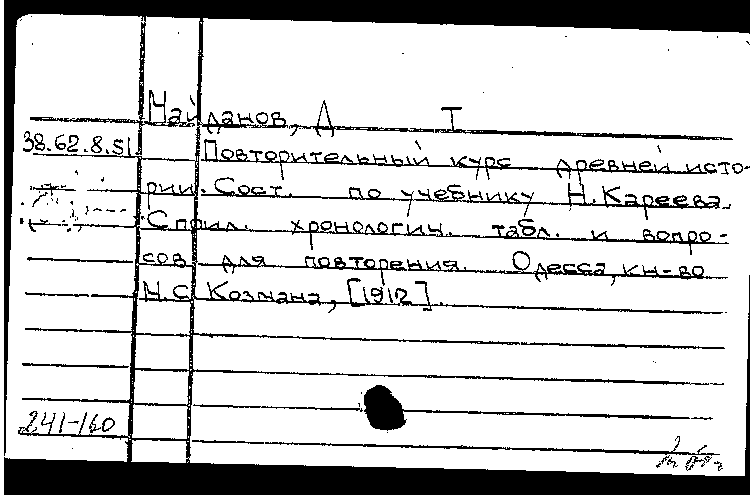 Майданов, Д Т
38.62.8.51.
Повторительный курс древней исто-
рии. Сост. по учебнику Н. Кареева.
С прил. хронологич. табл. и вопро-
сов для повторения. Одесса, кн-во
М.С Козмана, [1912].
241-160